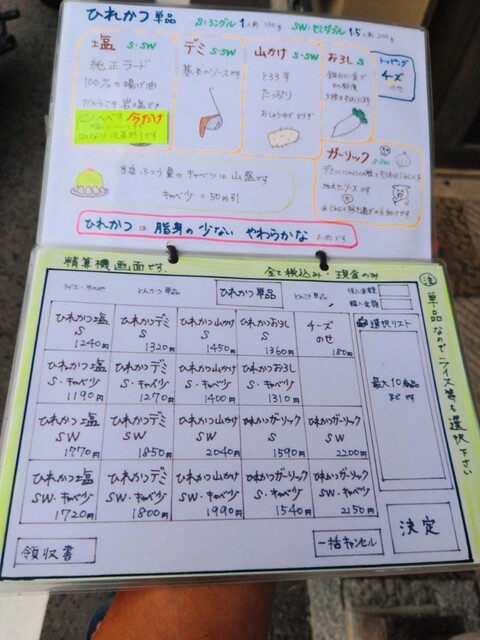 ひれかつ 単品
S:シングル 1人前 130g
SW:セミダブル 1.5人前 200g
塩 S・SW
純正ラード
100%の揚げ油
だからこそ、岩塩で
今だけ
デミ S・SW
基本のソースです
山かけ S・SW
とろろ芋
たっぷり
おろし S
トッピング
チーズ
のせ
ガーリック S・SW
キャベツは山盛です
キャベツ = 50円引
ひれかつ は 脂身の少ない やわらかな お肉です
精算機画面です。
全て税込み・現金のみ
㊟単品なのでライス等も選択下さい
とんかつ 単品
ひれかつ単品
投入金額
購入金額
ひれかつ塩
S
1240円
ひれかつデミ
S
1320円
ひれかつ山かけ
S
1450円
ひれかつおろし
S
1360円
チーズ
のせ
180円
選択リスト
最大10商品
までです
ひれかつ塩
S・キャベツ
1190円
ひれかつデミ
S・キャベツ
1270円
ひれかつ山かけ
S・キャベツ
1400円
ひれかつおろし
S・キャベツ
1310円
ひれかつ塩
SW
1770円
ひれかつデミ
SW
1850円
ひれかつ山かけ
SW
2040円
ひれかつガーリック
S
1590円
ひれかつガーリック
SW
2200円
ひれかつ塩
SW・キャベツ
1720円
ひれかつデミ
SW・キャベツ
1800円
ひれかつ山かけ
SW・キャベツ
1990円
ひれかつガーリック
S・キャベツ
1540円
ひれかつガーリック
SW・キャベツ
2150円
決定
領収書
一括キャンセル